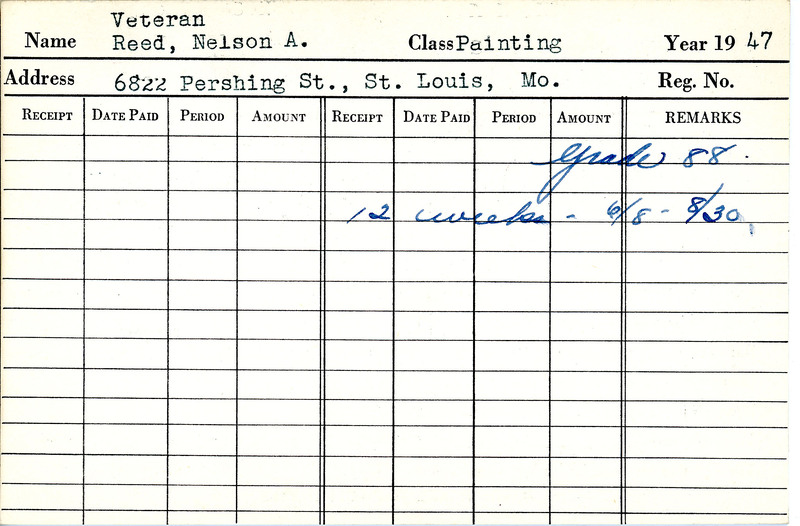 Veteran
Name Reed, Nelson A. Class Painting Year 19 47
Address 6822 Pershing St., St. Louis, Mo. Reg. No.
RECEIPT DATE PAID PERIOD AMOUNT RECEIPT DATE PAID PERIOD AMOUNT REMARKS
Grade 88.
12 weeks - 6/8 - 8/30